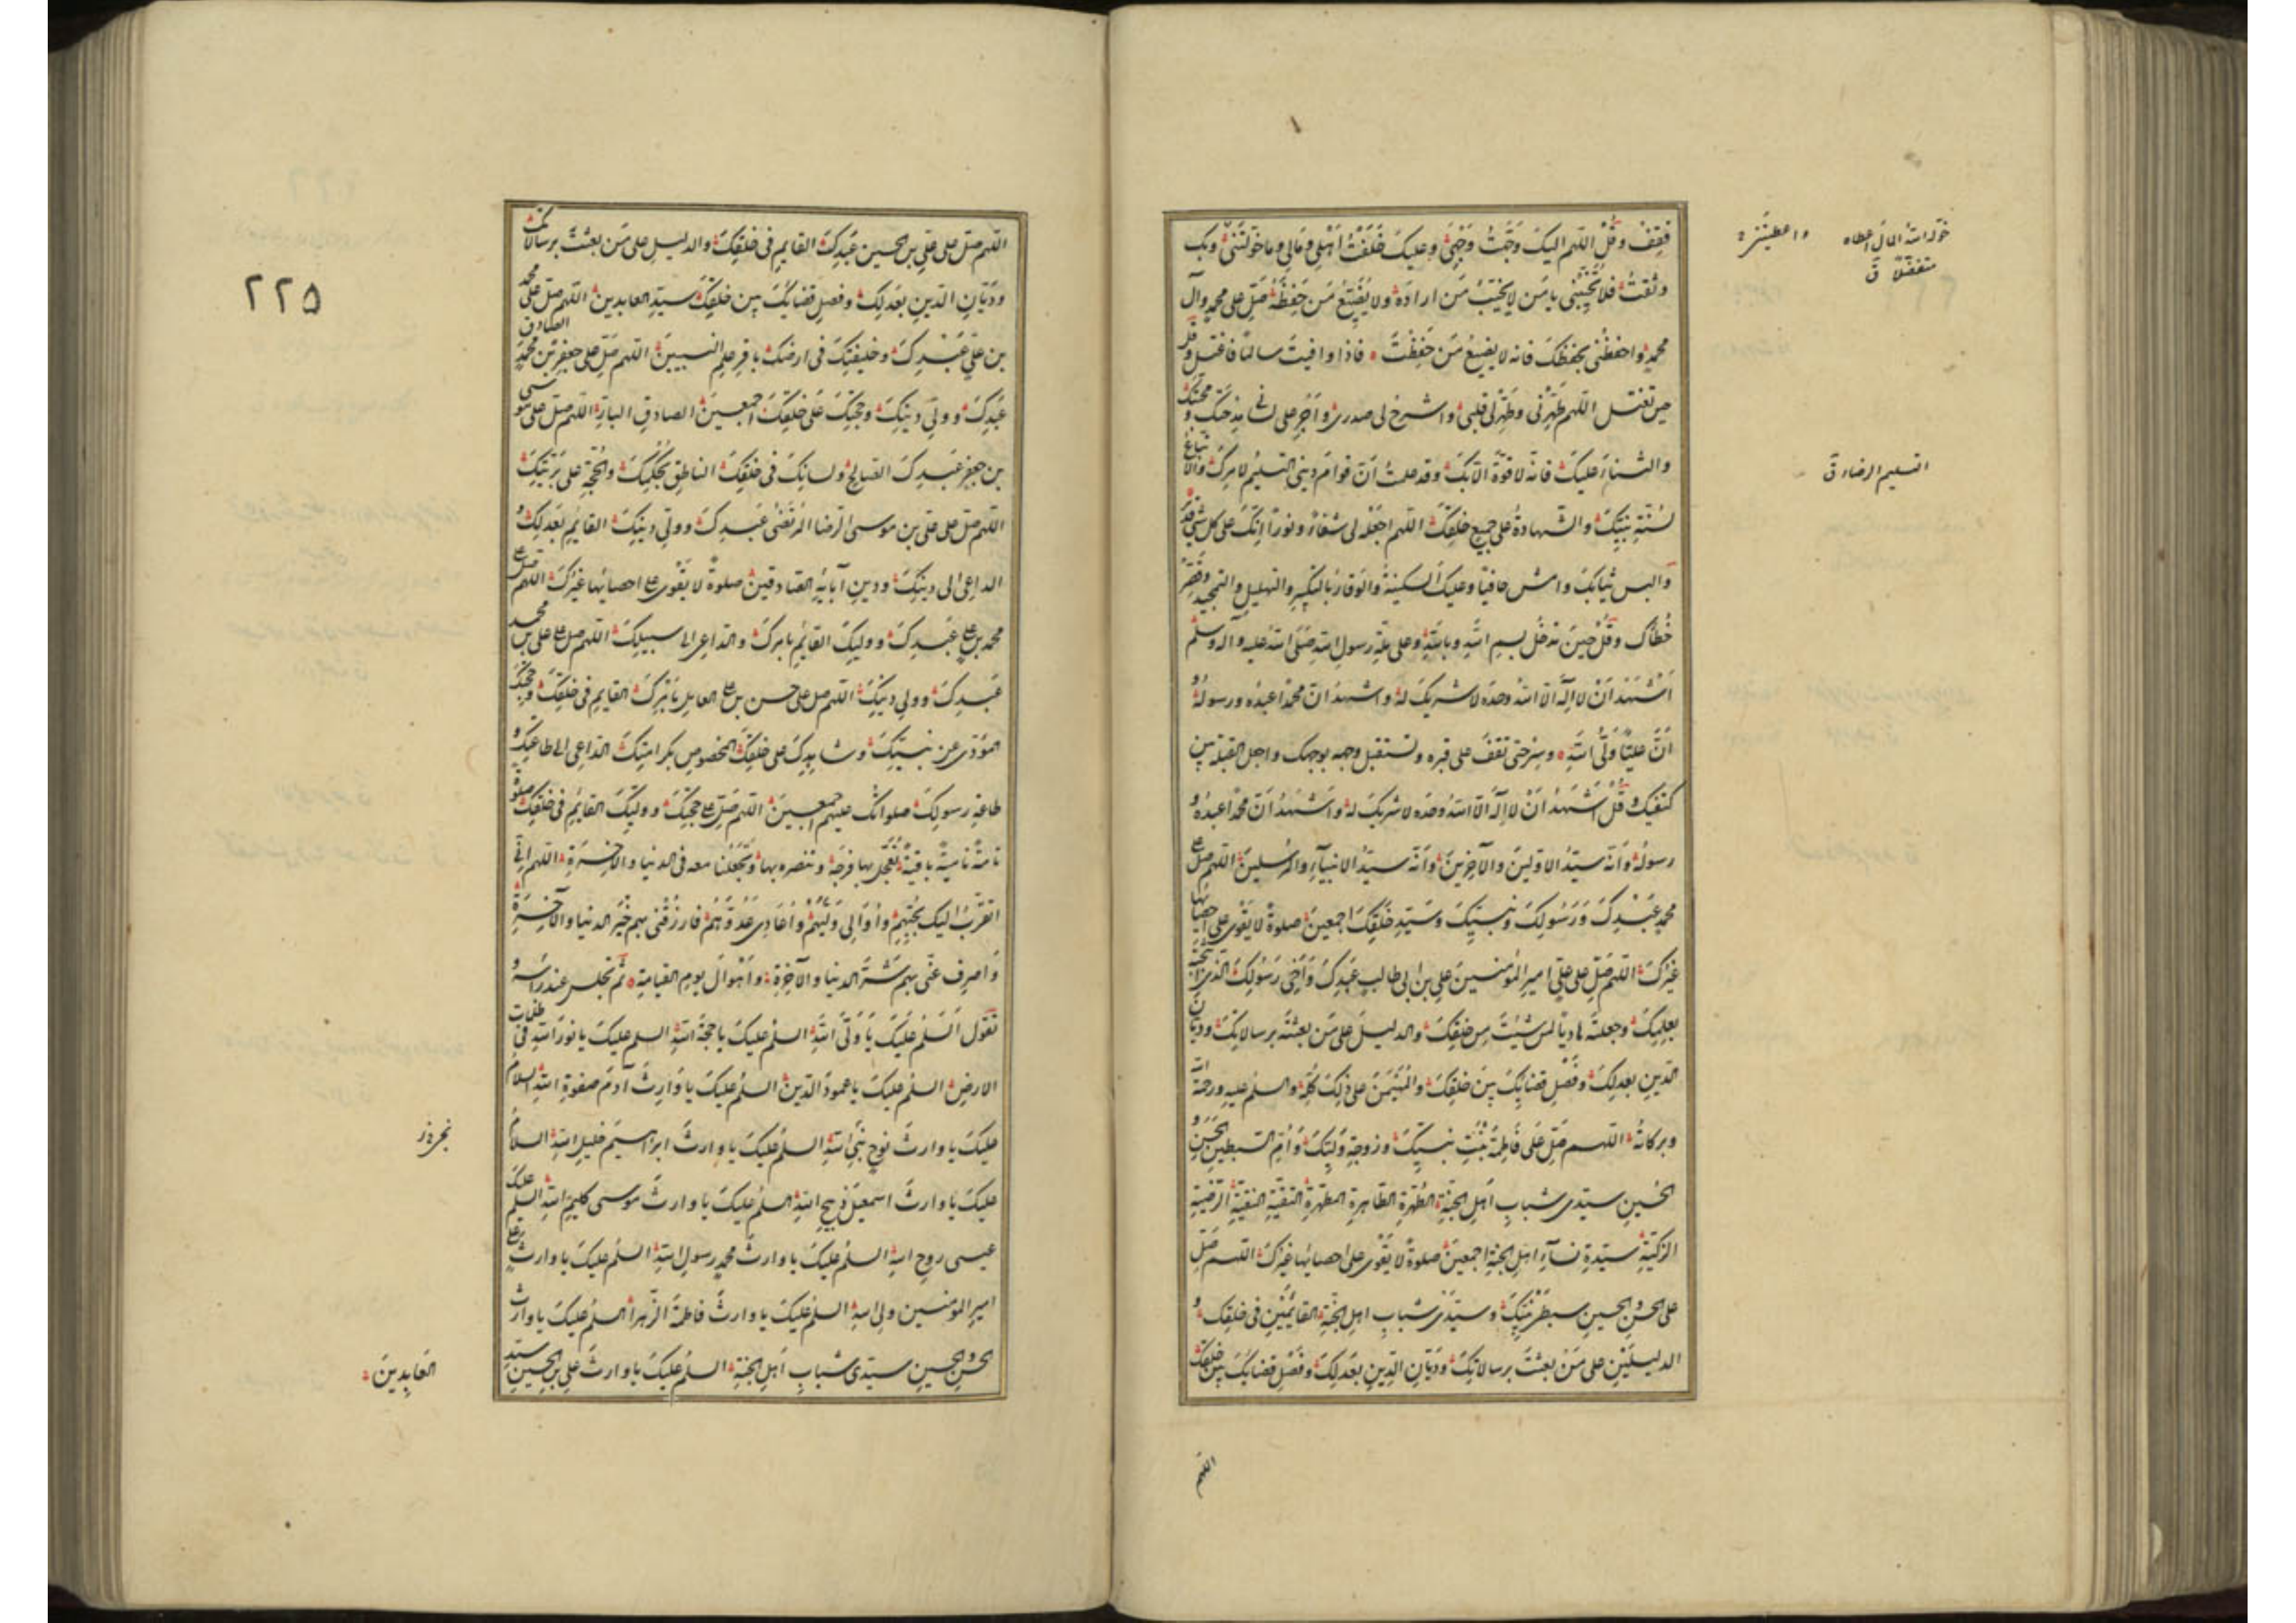 فقف وقُلْ اللهم اليكَ وَجَّهتُ وَجْهِى وعليكَ خَلَّفْتُ اَهْلِى وَمَالِى وما خَوَّلتَنى وبكَ
وثقتُ فلا تُخَيِّبْنى يا مَن لا يُخَيِّبُ مَن ارادَهُ ولا يُضَيِّعُ مَن حَفِظَهُ صَلِّ على محمدٍ وآل
محمدٍ واحفظْنى بحفظكَ فانه لا يضيعُ مَن حَفِظْتَ فاذا وافيتَ سالماً فاغتسل وقُل
حين تغتسل اللهم طَهِّرْنى وطَهِّرْ لى قلبى واشرحْ لى صدرى واَجْرِ على لسانى مِدْحَتَكَ ومحبتكَ
والثناءَ عليكَ فانه لا قوّةَ الّا بكَ وقد علمتُ اَنّ قوامَ دينى التسليمُ لامركَ والاتباعُ
لسُنّةِ نبيّكَ والشهادةُ على جميع خلقِكَ اللهم اجعَلْه لى شفاءً ونوراً اِنّكَ على كل شئ قديرٌ
والبس ثيابكَ وامشِ حافياً وعليكَ السكينةُ والوَقارُ بالتكبيرِ والتهليلِ والتمجيدِ وقصِّر
خُطاكَ وقُلْ حِينَ تدخُلُ بسمِ اللهِ وباللهِ وعلى ملّةِ رسولِ اللهِ صَلَّى اللهُ عليه وآله وسلّم
اَشْهَدُ اَنْ لا اِلٰهَ الّا اللهُ وحدَه لا شريكَ لهُ واشهدُ انّ محمداً عبدُه ورسولُهُ و
اَنَّ عليّاً وَلىُّ اللهِ وسِرْ حتى تقفَ على قبره وتستقبل وجهه بوجهك واجعل القبلة بين
كتفيك وقُلْ اَشْهَدُ اَنْ لا اِلٰهَ الّا اللهُ وحدَه لا شريكَ لهُ واَشْهَدُ اَنّ محمداً عبدُهُ و
رسولُهُ واَنّه سيّدُ الاوّلينَ والآخِرينَ واَنّه سيّدُ الانبيآءِ والمُرسلينَ اللهم صَلِّ على
محمدٍ عَبْدِكَ وَرَسُولِكَ ونبيّكَ وسَيّدِ خَلقِكَ اجمعينَ صلوةً لا يَقْوى على احصائها
غيرُكَ اللهم صَلِّ على علىٍّ اميرِ المُؤمنينَ على بن ابى طالبٍ عبدِكَ وَاَخى رَسُولِكَ الّذى انتجبتَهُ
بعِلمِكَ وجعلتَهُ هادياً لمن شِئْتَ مِن خلقِكَ والدليلَ على مَن بعثتَهُ برسالاتِكَ وديّانَ
الدّينِ بعدلِكَ وفَصْلِ قضائِكَ بَينَ خلقِكَ والمُهَيْمِنَ على ذلِكَ كُلِّه والسلم عليه ورحمة الله
وبركاتُهُ اللهم صَلِّ عَلى فاطِمَةَ بِنْتِ نبيّكَ وزوجةِ وَليّكَ وَاُمِّ السبطينِ الحَسَنِ و
الحُسينِ سيّدَى شبابِ اَهلِ الجنّةِ الطُهْرَةِ الطاهرةِ المطهّرةِ التقيّةِ النقيّةِ الرضيّةِ
الزكيّةِ سيّدةِ نسآءِ اهلِ الجنّةِ اجمعينَ صلوةً لا يَقْوى على احصائِها غيرُكَ اللهم صَلِّ
على الحسنِ والحسينِ سِبطَىْ نبيّكَ وسيّدَىْ شبابِ اهلِ الجنّةِ القائِمَيْنِ فى خلقِكَ و
الدليلَيْنِ على مَنْ بعثتَ برسالاتِكَ وديّانَىِ الدّينِ بعَدلِكَ وفَصْلِ قضائِكَ بين خلقِكَ
اللهم
خوّله الله المال اعطاه
متفضلا ق
واعطيتنى
التسليم الرضاء ق
اللهم صلّ على علىِّ بن الحسين عَبدِكَ القايمِ فى خلقِكَ والدليلِ على مَن بعثتَ برسالاتك
ودَيّانِ الدّينِ بعَدلِكَ وفصلِ قضائِكَ بين خلقِكَ سيّدِ العابدينَ اللهم صلّ على محمد
بن علىٍّ عَبْدِكَ وخليفتِكَ فى ارضِكَ باقرِ علمِ النبيينَ اللهم صَلّ على جعفرِ بن محمدٍ الصادق
عَبدِكَ وولىِّ دينِكَ وحجّتِكَ عَلى خلقِكَ اجمعينَ الصادقِ البارِّ اللهم صلّ على موسى
بن جعفرٍ عَبدِكَ الصالح ولسانِكَ فى خلقِكَ الناطقِ بحُكْمِكَ والحُجّةِ على بَرِيّتِكَ
اللهم صلّ على علىّ بن موسى الرّضا المُرتَضى عَبدِكَ وولىِّ دينِكَ القايمِ بعَدلِكَ و
الداعى الى دينِكَ ودينِ آبائهِ الصادقينَ صلوةً لا يَقْوى على احصائها غيرُكَ اللهم صل على
محمد بن علىٍّ عَبدِكَ ووليّكَ القايمِ بامرِكَ والداعى الى سبيلِكَ اللهم صل على على بن محمد
عَبدِكَ وولى دينِكَ اللهم صل على حسن بن على العاملِ بامْرِكَ القايمِ فى خلقِكَ وحجّتِكَ
المؤدّى عن نبيّكَ وشاهدِكَ على خلقِكَ المخصوصِ بكرامتِكَ الداعى الى طاعتِكَ و
طاعةِ رسولِكَ صلواتك عليهم اجمعينَ اللهم صَلِّ على حجّتِكَ ووليّكَ القايمِ فى خلقِكَ صلوة
تامّةً ناميةً باقيةً تُعَجّلُ بها فرجَهُ وتنصره بها وتَجعَلُنا معه فى الدنيا والآخرةِ اللهم انّى
اتقرّبُ اليك بحُبّهِم واُوالى وليّهُمْ واُعادى عَدُوَّهُمْ فارزقنى بهم خَيْرَ الدنيا والآخرةِ
وَاصرِف عنّى بهم شَرَّ الدنيا والآخِرةِ وَاَهْوالَ يومِ القيامةِ ثم تجلس عند رأسه و
تقول اَلسّلمُ عليكَ يا وَلىَّ اللهِ السلمُ عليكَ يا حجّةَ اللهِ السلم عليكَ يا نورَ اللهِ فى ظلمات
الارضِ السلمُ عليكَ يا عمودَ الدّينِ السلمُ عليكَ يا وَارِثَ آدمَ صفوةِ اللهِ السلامُ
عليكَ يا وارثَ نوحٍ نبىِّ اللهِ السلمُ عليكَ يا وارثَ ابراهيمَ خليلِ اللهِ السلامُ
عليكَ يا وارثَ اسمعيلَ ذبيحِ اللهِ السلمُ عليكَ يا وارثَ موسى كليمِ اللهِ السلم عليك يا وارث
عيسى روحِ اللهِ السلمُ عليكَ يا وارثَ محمدٍ رسولِ اللهِ السلمُ عليكَ يا وارثَ على
اميرِ المؤمنين ولى اللهِ السلمُ عليكَ يا وارثَ فاطمةَ الزّهرا السلمُ عليكَ يا وارث
الحسنِ والحسينِ سيّدى شبابِ اَهلِ الجنّةِ السلمُ عليكَ يا وارثَ على بن الحسينِ سيّدِ
العَابِدينَ
٢٢٥